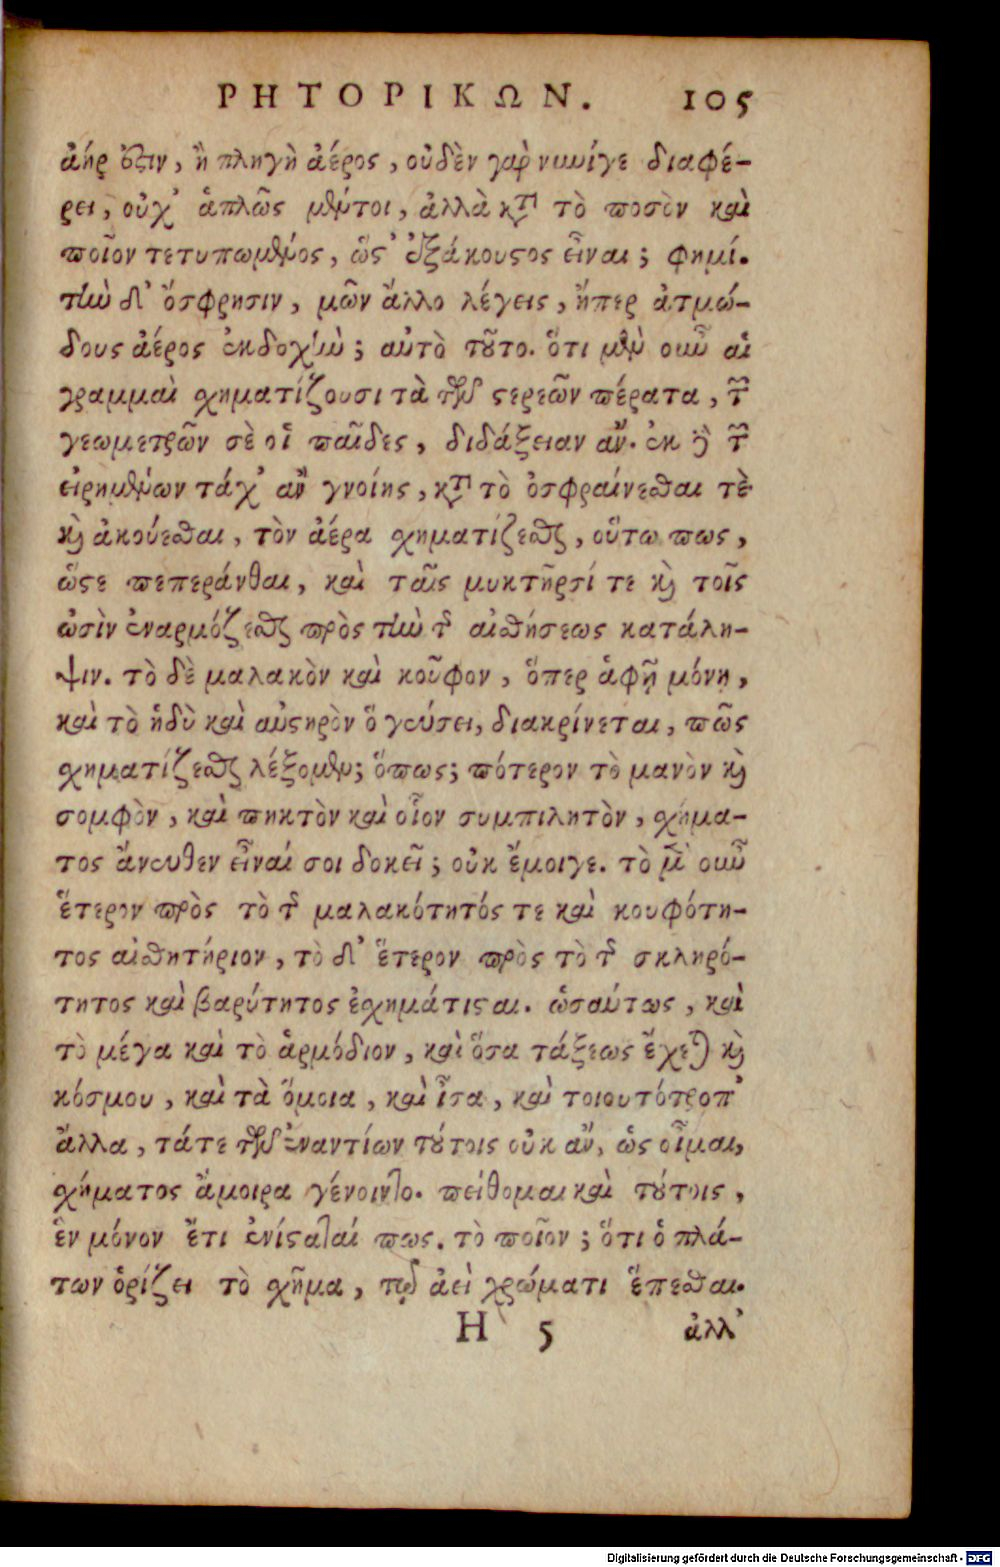 ΡΗΤΟΡΙΚΩΝ. 105
ἀήρ ὅξιν, ἢ πληγὴ ἀέρος, οὐδὲν γὰρ νυνίγε διαφέ-
ρει, οὐχ' ἁπλῶς μέντοι, ἀλλὰ κατὰ τὸ ποσὸν καὶ
ποῖον τετυπωμένος, ὥς' ἐξάκουστος εἶναι; φημί.
τὴν δ' ὄσφρησιν, μῶν ἄλλο λέγεις, ἤπερ ἀτμώ-
δους ἀέρος ἐκδοχὴν; αὐτὸ τοῦτο. ὅτι μὲν οὖν αἱ
γραμμαὶ σχηματίζουσι τὰ τῶν στερεῶν πέρατα, τῶν
γεωμετρῶν σὲ οἱ παῖδες, διδάξειαν ἄν. ἐκ δὴ τῶν
εἰρημένων τάχ' ἂν γνοίης, κατὰ τὸ ὀσφραίνεσθαι τὲ
καὶ ἀκούεσθαι, τὸν ἀέρα σχηματίζεσθαι, οὕτω πως,
ὥστε πεπεράνθαι, καὶ ταῖς μυκτῆρσί τε καὶ τοῖς
ὠσὶν ἐναρμόζεσθαι πρὸς τὴν τῆς αἰσθήσεως κατάλη-
ψιν. τὸ δὲ μαλακὸν καὶ κοῦφον, ὅπερ ἁφῇ μόνῃ,
καὶ τὸ ἡδὺ καὶ αὐστηρὸν ὃ γεύσει, διακρίνεται, πῶς
σχηματίζεσθαι λέξομεν; ὅπως; πότερον τὸ μανὸν καὶ
σομφὸν, καὶ πηκτὸν καὶ οἷον συμπιλητὸν, σχήμα-
τος ἄνευθεν εἶναί σοι δοκεῖ; οὐκ ἔμοιγε. τὸ μὲν οὖν
ἕτερον πρὸς τὸ τῆς μαλακότητός τε καὶ κουφότη-
τος αἰσθητήριον, τὸ δ' ἕτερον πρὸς τὸ τῆς σκληρό-
τητος καὶ βαρύτητος ἐσχημάτισται. ὡσαύτως, καὶ
τὸ μέγα καὶ τὸ ἁρμόδιον, καὶ ὅσα τάξεως ἔχεται καὶ
κόσμου, καὶ τὰ ὅμοια, καὶ ἶσα, καὶ τοιουτότροπ'
ἄλλα, τάτε τῶν ἐναντίων τούτοις οὐκ ἄν, ὡς οἶμαι,
σχήματος ἄμοιρα γένοιντο. πείθομαι καὶ τούτοις,
ἓν μόνον ἔτι ἐνίσταταί πως. τὸ ποῖον; ὅτι ὁ πλά-
των ὁρίζει τὸ σχῆμα, τῷ ἀεὶ χρώματι ἕπεσθαι.
H 5 ἀλλ'